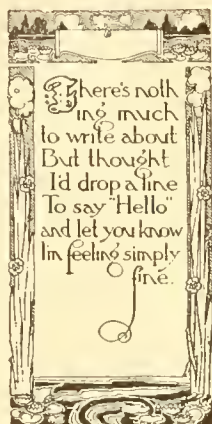 There's noth
ing much
to write about
But thought
I'd drop a line
To say "Hello"
and let you know
I'm feeling simply
fine.